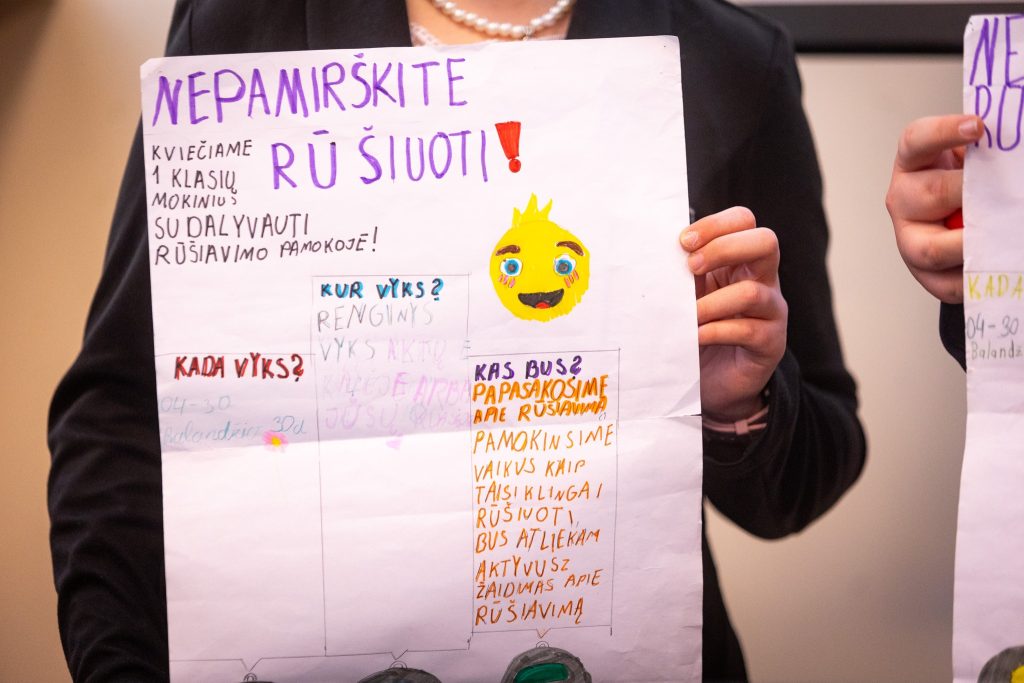 NEPAMIRŠKITE
RŪŠIUOTI!
KVIEČIAME
1 KLASIŲ
MOKINIUS
SUDALYVAUTI
RŪŠIAVIMO PAMOKOJĖ!
KADA VYKS?
04-30
Balandžio 30d
KUR VYKS?
RENGINYS
VYKS AKTŲ
ARBA
JŪSŲ
KAS BUS?
PAPASAKOSIME
APIE RŪŠIAVIMĄ
PAMOKINSIME
VAIKUS KAIP
TAISIKLINGAI
RŪŠIUOTI,
BUS ATLIEKAM
AKTYVUSZ
ŽAIDIMAS APIE
RŪŠIAVIMĄ
NE
RŪ
KADA
04-30
Balandž